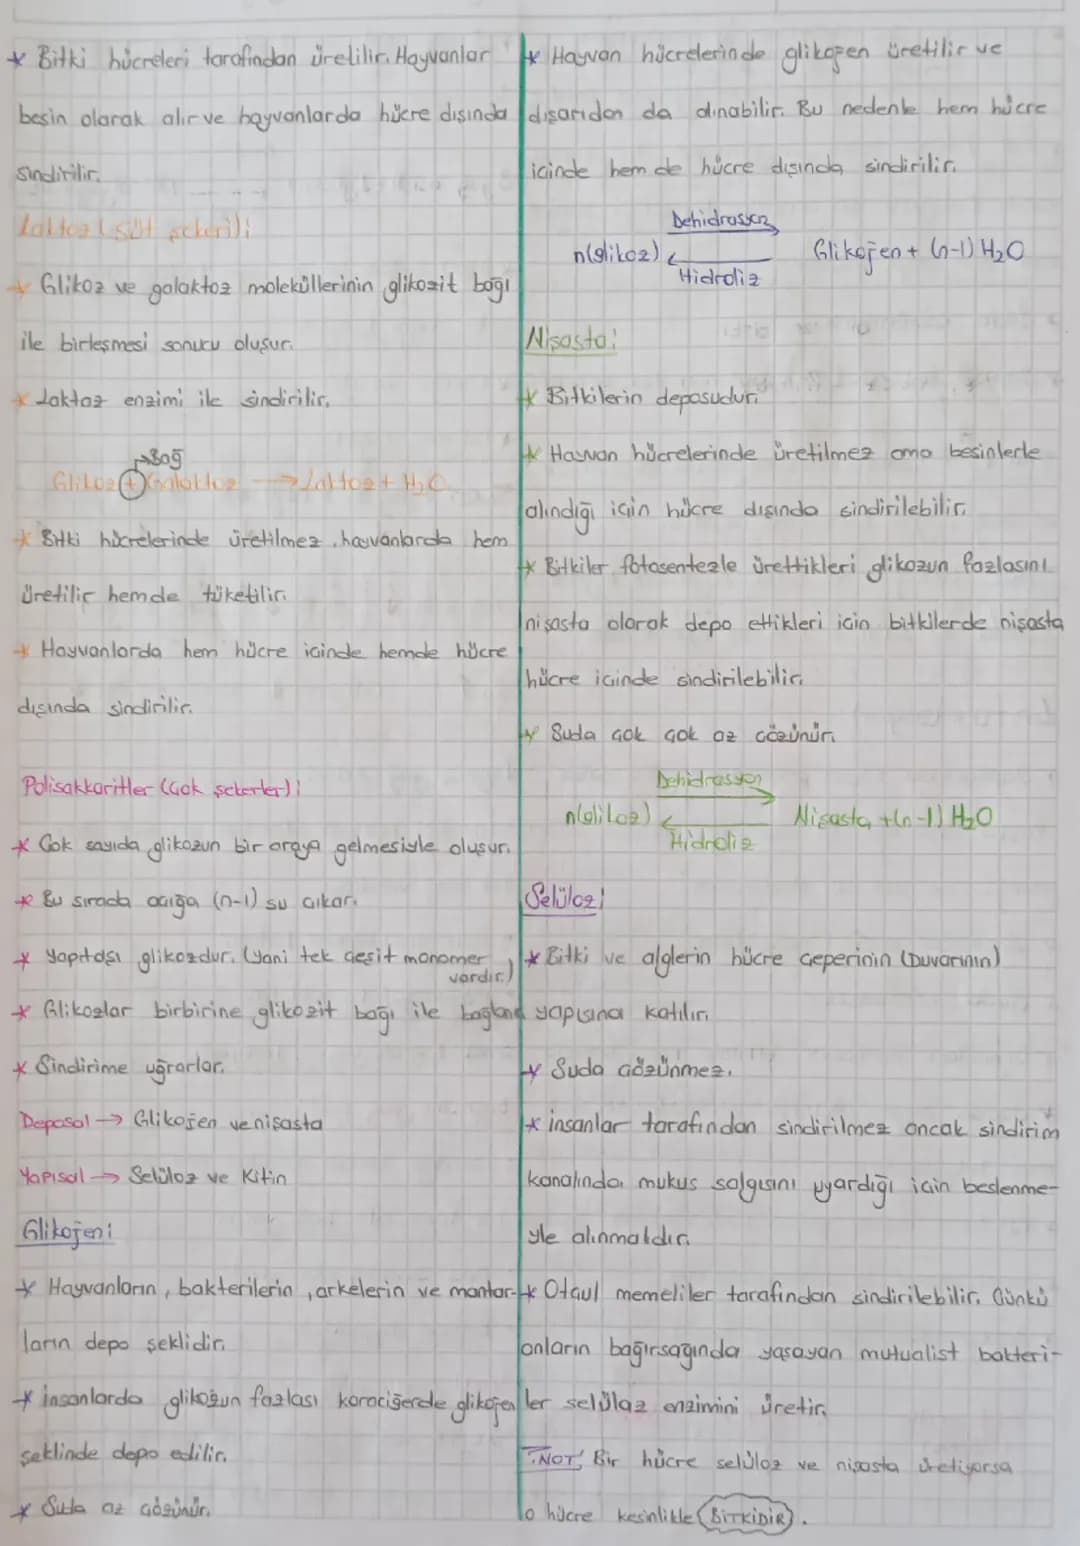 * Bitki hücreleri tarafından üretilir. Hayvanlar
besin olarak alır ve hayvanlarda hücre dışında
sindirilir.
Laktoz (süt şekeri):
* Glikoz ve galaktoz moleküllerinin glikozit bağı
ile birleşmesi sonucu oluşur.
* Laktaz enzimi ile sindirilir.
Bağ
Glikoz + Galaktoz → Laktoz + H₂O
* Bitki hücrelerinde üretilmez, hayvanlarda hem
üretilir hemde tüketilir.
* Hayvanlarda hem hücre içinde hemde hücre
dışında sindirilir.
Polisakkaritler (Çok şekerler):
* Çok sayıda glikozun bir araya gelmesiyle oluşur.
* Bu sırada açığa (n-1) su çıkar.
* Yapıtaşı glikozdur. (Yani tek çeşit monomer
vardır.)
* Glikozlar birbirine glikozit bağı ile bağlanır
* Sindirime uğrarlar.
Deposal → Glikojen ve nişasta
Yapısal → Selüloz ve Kitin
Glikojen:
* Hayvanların, bakterilerin, arkelerin ve mantar-
ların depo şeklidir.
* insanlarda glikozun fazlası karaciğerde glikojen
şeklinde depo edilir.
* Suda az çözünür.
* Hayvan hücrelerinde glikojen üretilir ve
dışarıdan da alınabilir. Bu nedenle hem hücre
içinde hem de hücre dışında sindirilir.
Dehidrasyon
n(glikoz) ⇌ Glikojen + (n-1) H₂O
Hidroliz
Nişasta:
* Bitkilerin deposudur.
* Hayvan hücrelerinde üretilmez ama besinlerle
alındığı için hücre dışında sindirilebilir.
* Bitkiler fotosentezle ürettikleri glikozun fazlasını
nişasta olarak depo ettikleri için bitkilerde nişasta
hücre içinde sindirilebilir.
* Suda çok çok az çözünür.
Dehidrasyon
n(glikoz) ⇌ Nişasta + (n-1) H₂O
Hidroliz
Selüloz:
* Bitki ve alglerin hücre çeperinin (Duvarının)
yapısına katılır.
* Suda çözünmez.
* insanlar tarafından sindirilmez ancak sindirim
kanalında mukus salgısını uyardığı için beslenme-
yle alınmalıdır.
* Otçul memeliler tarafından sindirilebilir. Çünkü
onların bağırsağında yaşayan mutualist bakteri-
ler selülaz enzimini üretir.
NOT: Bir hücre selüloz ve nişasta üretiyorsa
o hücre kesinlikle BİTKİDİR.